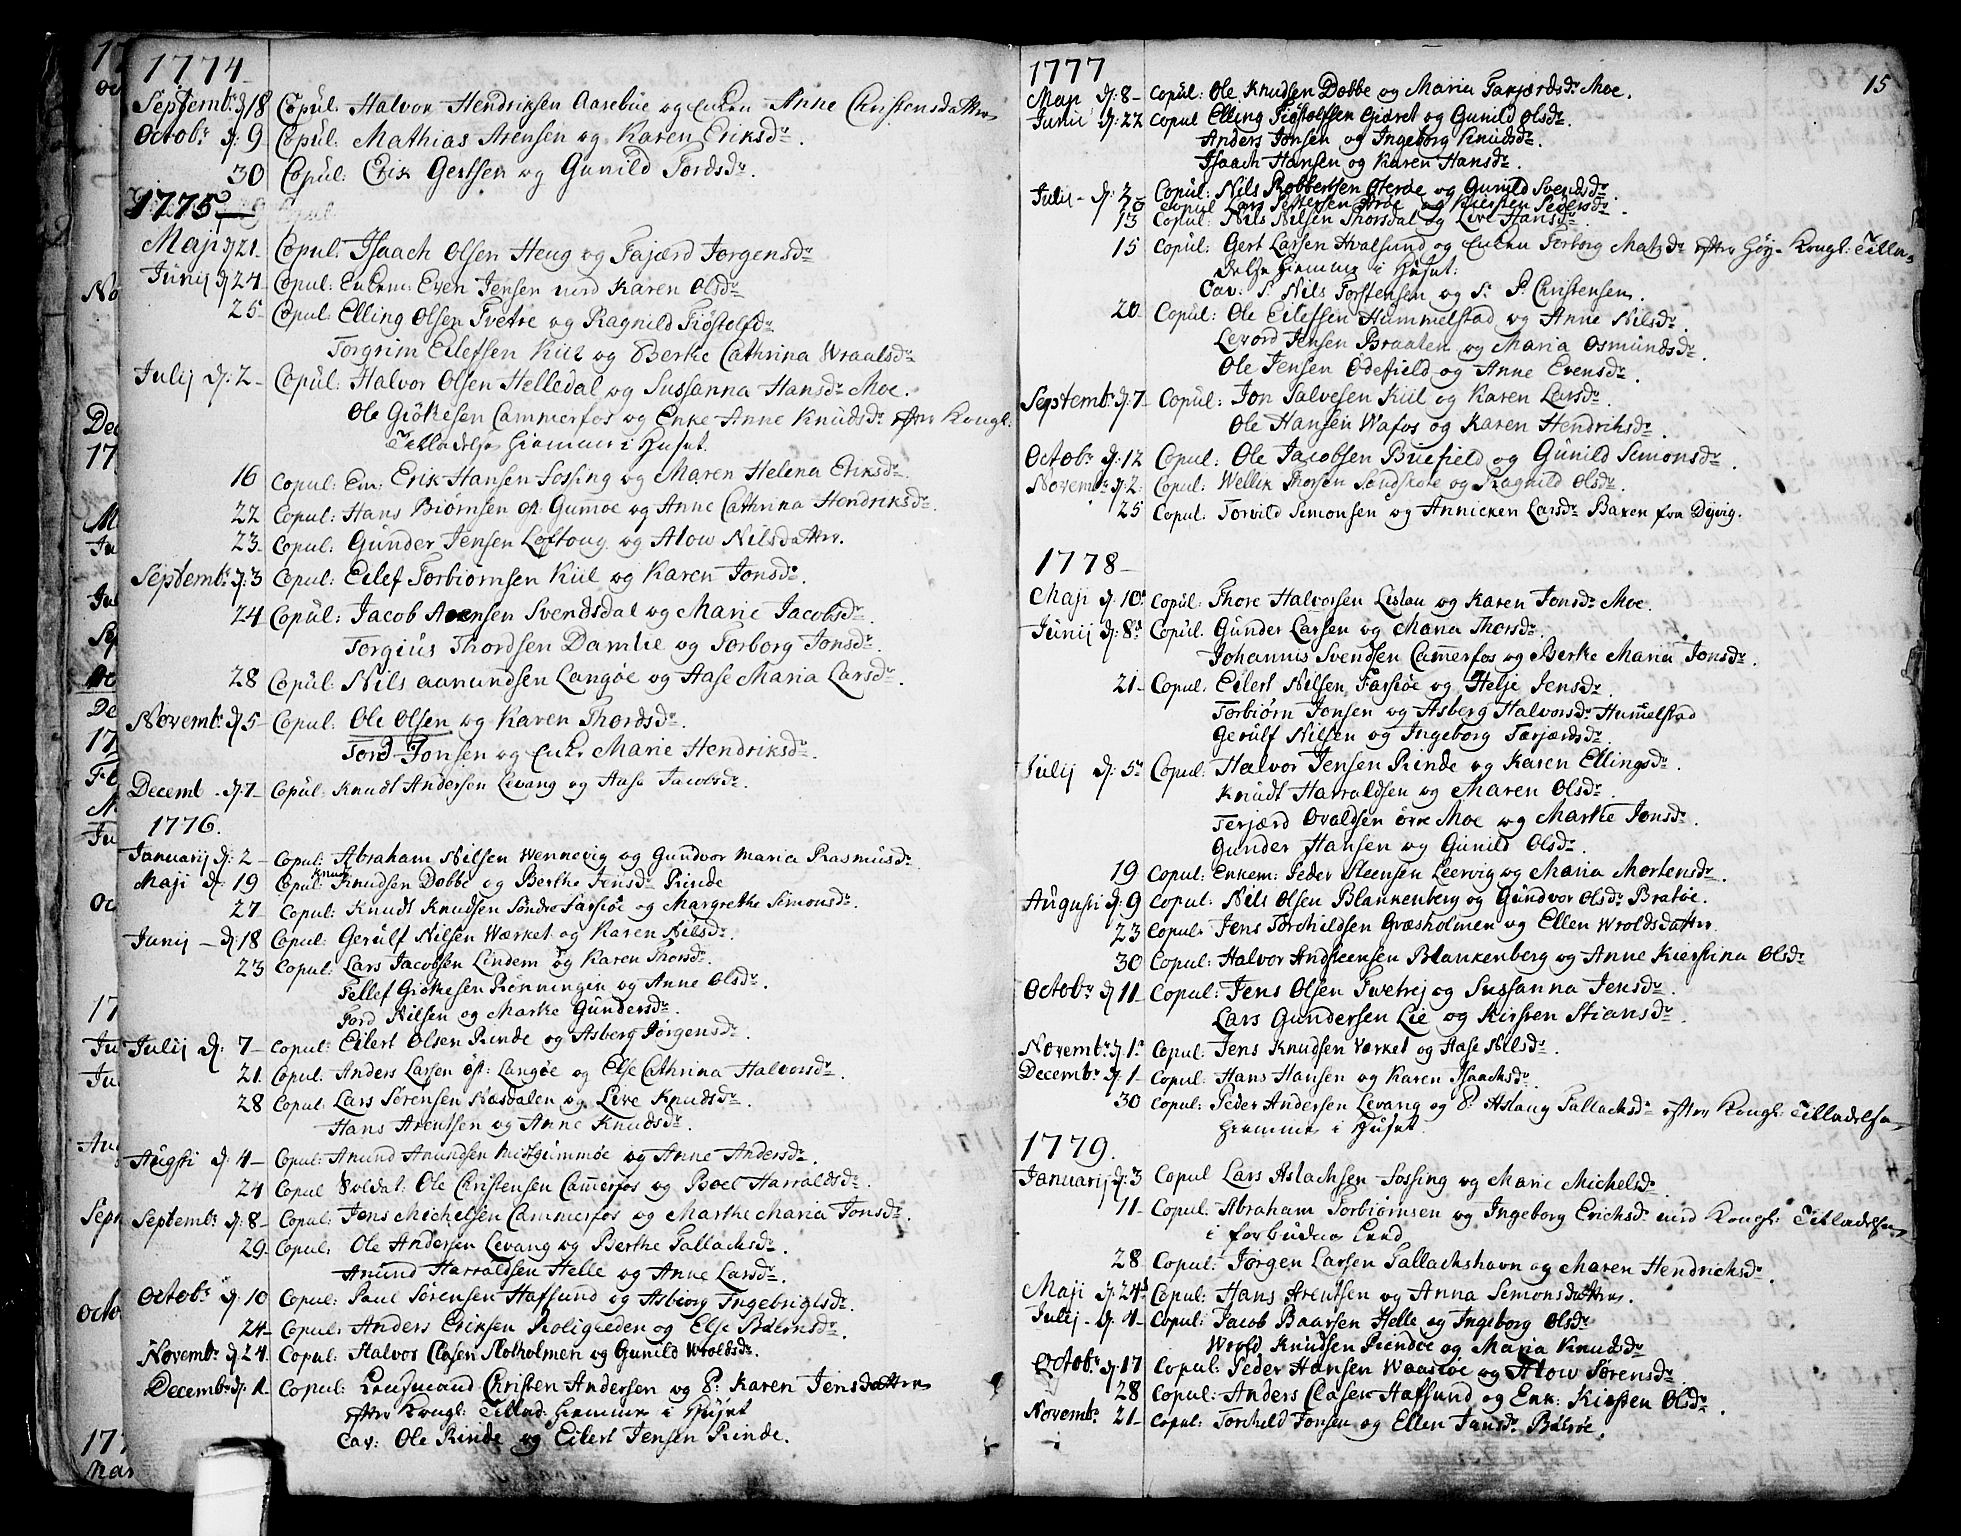 1774
Septembr d. 18 Copul. Halvor Hendriksen Aasebue og Enken Anne Christensdatter
Octobr d. 9 Copul: Mathias Arensen og Karen Eriksdr.
30 Copul: Erik Gertsen og Gunild Tordsdr.
1775
Maji d. 21. Copul. Isaach Olsen Heug og Tajærd Jorgensdr
Junij d. 24 Copul: Enkem: Even Jensen med Karen Olsdr
25 Copul Elling Olsen Tvetre og Ragnild Tiøstolfdr
Torgrim Eilefsen Kiil og Berte Cathrina Wraalsdr
Julij d: 2 Copul: Halvor Olsen Helledal og Sussanna Hansdr Moe.
Ole Giøkesen Cammerfos og Enke Anne Knudsdr efter Kongl:
Tilladelse hiemme i Huset.
16 Copul: Em: Erik Hansen Sossing og Maren Helena Eriksdr
22 Copul: Hans Biørnsen Gumøe og Anne Cathrina Hendriksdr.
23 Copul: Gunder Jensen Loftoug og Alow Nilsdatter.
Septembr d. 3 Copul: Eilef Torbiørnsen Kiil og Karen Jonsdr.
24 Copul: Jacob Arensen Svendsdal og Marie Jacobsdr.
Torgius Thordsen Damlie og Torborg Jonsdr.
28 Copul: Nils Aanundsen Langøe og Aase Maria Larsdr.
Novembr d. 5 Copul: Ole Olsen og Karen Thordsdr.
Tord Jonsen og Enke Marie Hendriksdr.
Decemb d. 7 Copul: Knudt Andersen Levang og Aase Jacobsdr.
1776.
Januarij d: 2 Copul: Abraham Nilsen Wennevig og Gundvor Maria Rasmusdr
Maji d. 19 Copul: Knut Knudsen Dobbe og Berthe Jensdr Rinde
27 Copul: Knudt Knudsen Søndre Farsiøe og Margrethe Simonsdr.
Junij d: 18 Copul: Gerulf Nilsen Wærket og Karen Nilsdr.
23 Copul: Lars Jacobsen Lindem og Karen Thorsdr.
Tellef Giøkesen Rønningen og Anne Olsdr.
Tord Nilsen og Marthe Gundersdr.
Julij d: 7 Copul: Eilert Olsen Rinde og Asberg Jørgensdr.
21 Copul: Anders Larsen Øst: Langøe og Else Cathrina Halvorsdr.
28 Copul: Lars Sørensen Næsdalen og Live Knudsdr.
Hans Arentsen og Anne Knudsdr.
Augsti d: 4 Copul: Anund Aanundsen og Anne Andersdr.
24 Copul Soldat: Ole Christensen Camerfos og Boel Harraldsdr.
Septembr d: 8 Copul: Jens Michelsen Cammerfos og Marthe Maria Jonsdr.
29 Copul: Ole Andersen Levang og Berthe Tallachsdr.
Anund Harraldsen Helle og Anne Larsdr.
Octobr d: 10 Copul: Paul Sørensen Hafsund og Asbiorg Ingebrigtsdr.
24 Copul: Anders Eriksen Roligeden og Else Biørnsdr.
Novembr d. 24. Copul: Halvor Clasen Slotholmen og Gunild Wroldsdr.
Decembr d. 1 Copul: Lensmand Christen Andersen og P: Karen Jensdatter
efter Kongl: Tillad: hiemme i Huset
Cav: Ole Rinde og Eilert Jensen Rinde.
15
1777
Maji d: 8 Copul: Ole Knudsen Dobbe og Maria Tarjærdsdr Moe.
Junii d: 22 Copul Elling Tiøstolfsen Gidret og Gunild Olsdr.
Anders Jonsen og Ingeborg Knudsdr.
Isaach Hansen og Karen Hansdr.
Julij d. Copul: Nils Robbertsen og Gunild Svendsdr.
Copul Lars og Kiersten Pedersdr.
13 Copul: Nils Nilsen Thorsdal og Live Hansdr.
15 Copul: Gert Larsen Hvalsund og Enken Torborg Matsdr efter Høy-Kongl: Tilla=
delse hiemme i Huset:
Cav: S. Nils Torstensen og S. P. Christensen.
20 Copul: Ole Eilefsen Hummelstad og Anne Nilsdr.
Levord Jensen Braaten og Maria Osmundsdr.
Ole Jensen Ødefield og Anne Evensdr.
Septembr d. 7 Copul: Jon Salvesen Kiil og Karen Larsdr.
Ole Hansen Wafos og Karen Hendriksdr.
Octobr d. 12 Copul: Ole Jacobsen Buefield og Gunild Simonsdr.
Novembr d. 2. Copul: Wellik Thorsen Sandskote og Ragnild Olsdr.
25 Copul. Torvild Simonsen og Annicken Larsdr Baren fra Dyvig.
1778
Maji d: 10 Copul: Thore Halvorsen Listou og Karen Jonsdr Moe.
Junij d: 8 Copul. Gunder Larsen og Maria Thorsdr.
Johannis Svendsen Camerfos og Berte Maria Jonsdr.
21 Copul. Eilert Nilsen Farsiøe og Helje Jensdr.
Torbiørn Jonsen og Asberg Halvorsdr Hummelstad
Gerulf Nilsen og Ingeborg Tarjærdsdr.
Julij d: 5 Copul: Halvor Jensen Rinde og Karen Ellingsdr.
Knudt Harraldsen og Maren Olsdr.
Terjærd Ovaldsen øvre Moe og Marthe Jonsdr.
Gunder Hansen og Gunild Olsdr.
19 Copul: Enkem: Peder Steensen Leervig og Maria Mortensdr.
Augusti d. 9 Copul: Nils Olsen Blankenberg og Gundvor Olsdr Bratøe.
23 Copul: Jens Torchildsen Græsholmen og Ellen Wroldsdatter
30 Copul: Halvor Andsteensen Blankenberg og Anne Kierstina Olsdr
Octobr d. 11 Copul: Jens Olsen Tvetrej og Sussanna Jensdr.
Lars Gundersen Lie og Kirsten Stiansdr.
Novembr d. 1 Copul: Jens Knudsen Værket og Aase Nilsdr.
Decembr d. 1 Copul: Hans Hansen og Karen Isaachsdr.
30 Copul: Peder Andersen Levang og P: Aslaug Tallachsdr efter Kongl: Tilladelse
hiemme i Huset.
1779.
Januarij d: 3 Copul Lars Aslachsen Sossing og Marie Michelsdr.
11 Copul. Abraham Torbiørnsen og Ingeborg Erichsdr med Kongl: Tilladelse
i forbudne Leed.
28 Copul: Jørgen Larsen Tallachshavn og Maren Hendrichsdr.
Maji d. 24 Copul: Hans Arentsen og Anna Simonsdatter.
Julij d. 4 Copul: Jacob Baarsen Helle og Ingeborg Olsdr
Wrold Knudsen Riendøe og Maria Knudsdr
Octobr d. 17 Copul: Peder Hansen Waasøe og Alow Sørensdr.
28 Copul: Anders Clasen Hafsund og Enk: Kirsten Olsdr.
Novembr 21 Copul: Torchild Jonsen og Ellen Jansdr Bølsøe.